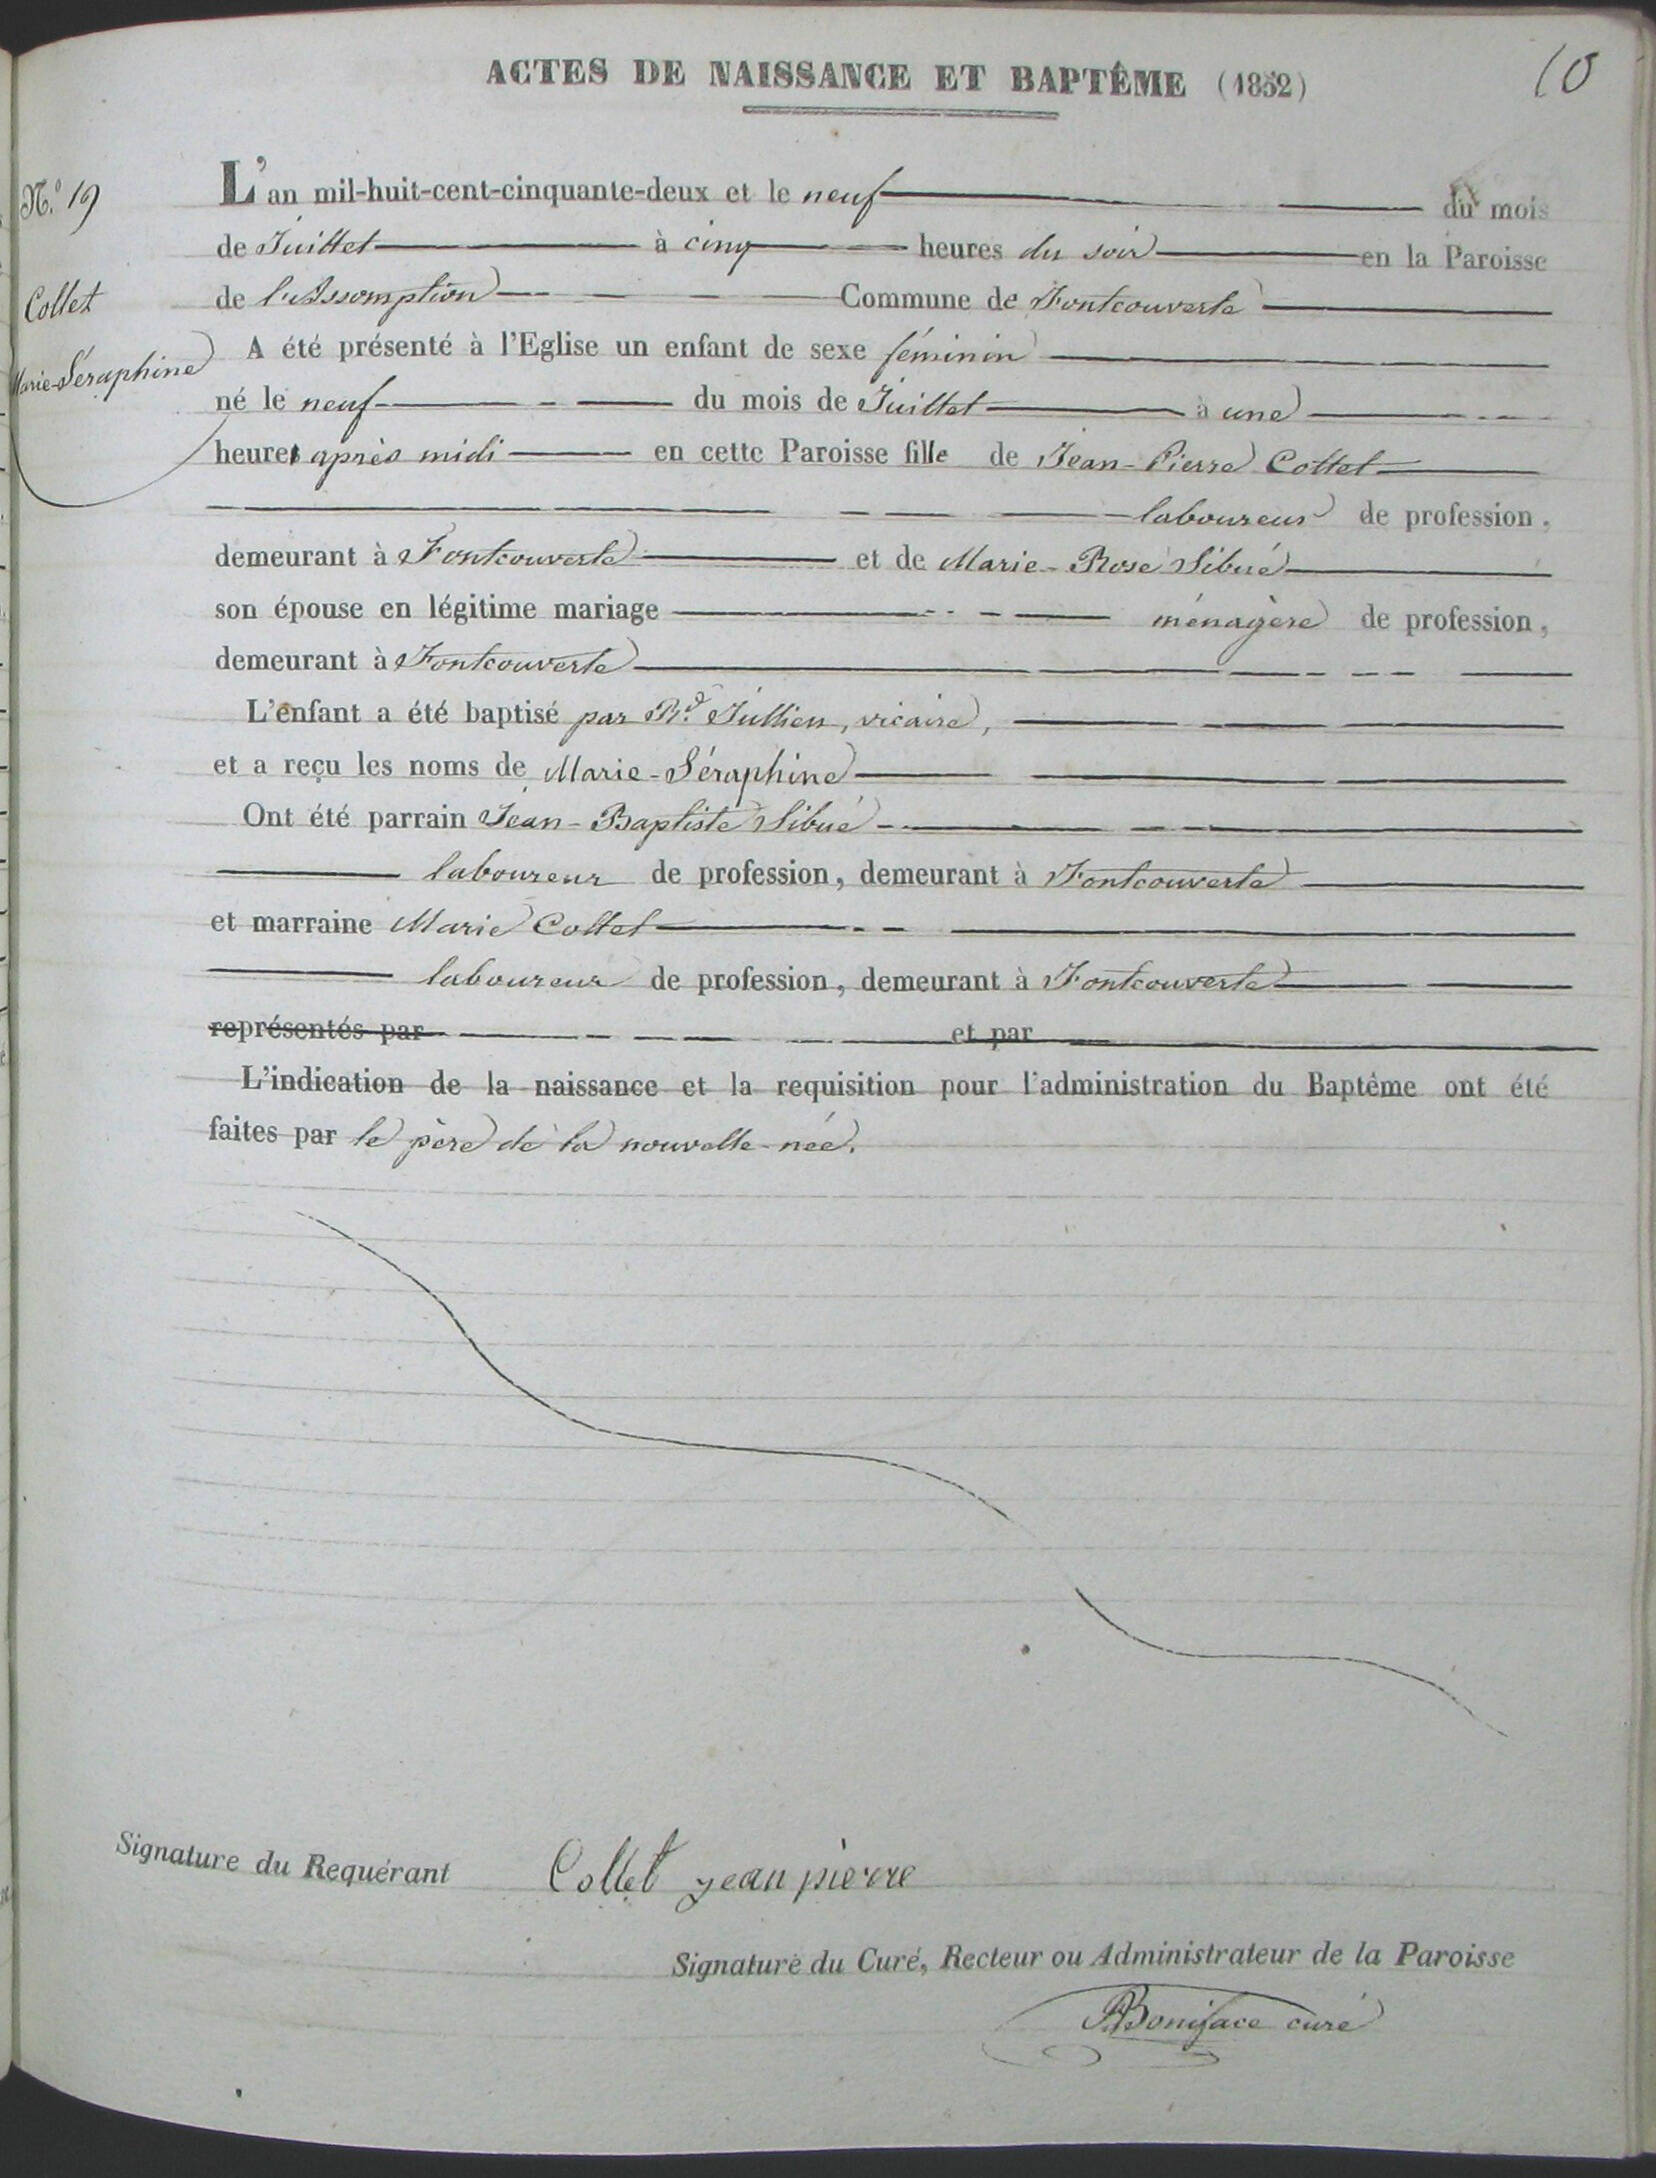 ACTES DE NAISSANCE ET BAPTÊME (1852)
10
N.º 19
Collet
Marie-Séraphine
L'an mil-huit-cent-cinquante-deux et le neuf du mois
de Juillet à cinq heures du soir en la Paroisse
de l'Assomption Commune de Fontcouverte
A été présenté à l'Eglise un enfant de sexe féminin
né le neuf du mois de Juillet à une
heure après midi en cette Paroisse fille de Jean-Pierre Collet
laboureur de profession,
demeurant à Fontcouverte et de Marie-Rose Sibué
son épouse en légitime mariage ménagère de profession,
demeurant à Fontcouverte
L'enfant a été baptisé par Rd Jullien, vicaire,
et a reçu les noms de Marie-Séraphine
Ont été parrain Jean-Baptiste Sibué
laboureur de profession, demeurant à Fontcouverte
et marraine Marie Collet
laboureur de profession, demeurant à Fontcouverte
représentés par et par
L'indication de la naissance et la requisition pour l'administration du Baptême ont été
faites par le père de la nouvelle-née.
Signature du Requérant Collet jean pierre
Signature du Curé, Recteur ou Administrateur de la Paroisse
Boniface curé